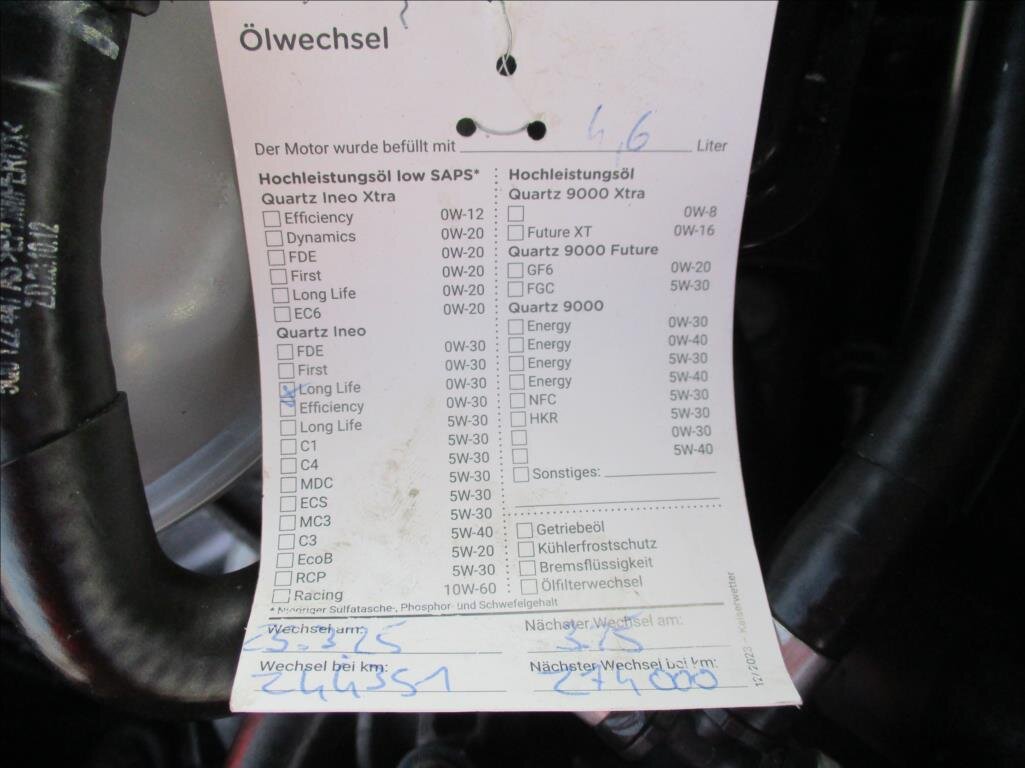 Ölwechsel
Der Motor wurde befüllt mit 4,6 Liter
Hochleistungsöl low SAPS*
Quartz Ineo Xtra
Efficiency 0W-12
Dynamics 0W-20
FDE 0W-20
First 0W-20
Long Life 0W-20
EC6 0W-20
Quartz Ineo
FDE 0W-30
First 0W-30
Long Life 0W-30
Efficiency 0W-30
Long Life 5W-30
C1 5W-30
C4 5W-30
MDC 5W-30
ECS 5W-30
MC3 5W-30
C3 5W-40
EcoB 5W-20
RCP 5W-30
Racing 10W-60
* Niedriger Sulfatasche-, Phosphor- und Schwefelgehalt
Hochleistungsöl
Quartz 9000 Xtra
0W-8
Future XT 0W-16
Quartz 9000 Future
GF6 0W-20
FGC 5W-30
Quartz 9000
Energy 0W-30
Energy 0W-40
Energy 5W-30
Energy 5W-40
NFC 5W-30
HKR 5W-30
0W-30
5W-40
Sonstiges:
Getriebeöl
Kühlerfrostschutz
Bremsflüssigkeit
Ölfilterwechsel
Wechsel am: 25.3.25
Nächster Wechsel am:
Wechsel bei km: 244351
Nächster Wechsel bei km: 274000
12/2023 - Kaiserwetter